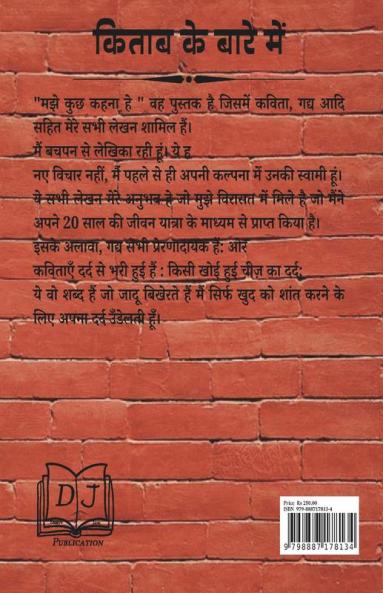 किताब के बारे में
"मझे कुछ कहना हे " वह पुस्तक है जिसमें कविता, गद्य आदि
सहित मेरे सभी लेखन शामिल हैं।
मैं बचपन से लेखिका रही हूं। ये ह
नए विचार नहीं, मैं पहले से ही अपनी कल्पना में उनकी स्वामी हूं।
ये सभी लेखन मेरे अनुभब हे जो मुझे विरासत में मिले है जो मैंने
अपने 20 साल की जीवन यात्रा के माध्यम से प्राप्त किया है।
इसके अलावा, गद्य सभी प्रेरणादायक हैं: और
कविताएँ दर्द से भरी हुई हैं : किसी खोई हुई चीज़ का दर्द;
ये वो शब्द हैं जो जादू बिखेरते हैं मैं सिर्फ खुद को शांत करने के
लिए अपना दर्द उँडेलती हूँ।
D J
PUBLICATION
Price: Rs 250.00
ISBN 979-888717813-4
9 798887 178134